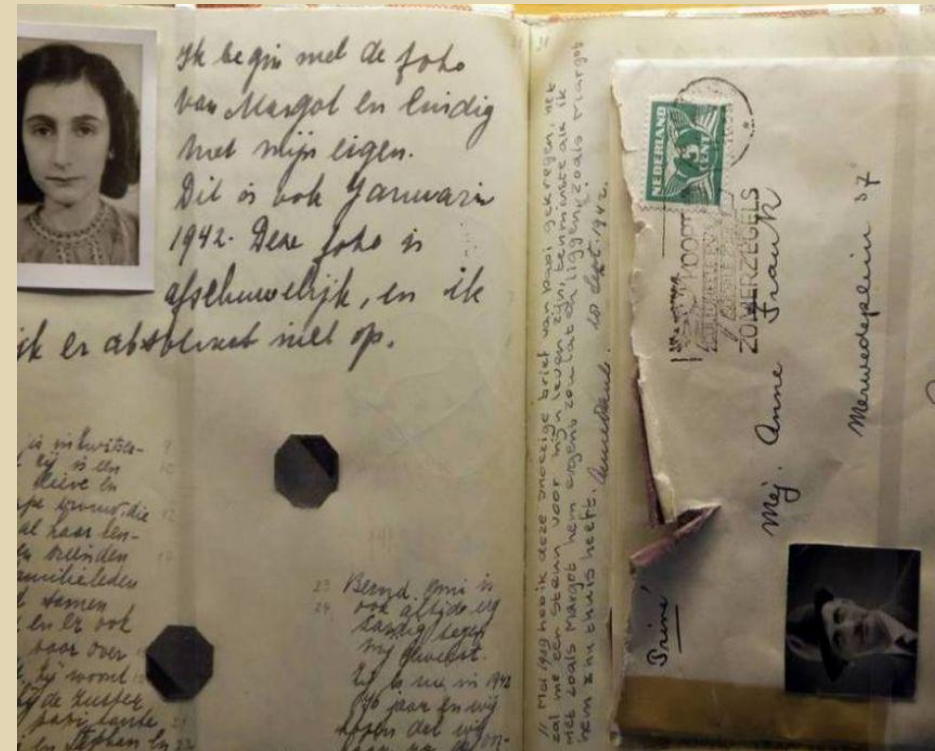 Ik begin met de foto
van Margot en eindig
met mijn eigen.
Dit is ook Januari
1942. Deze foto is
afschuwelijk, en ik
ijk er absoluut niet op.
is in Zwitser-
zij is een
lieve en
die
al naar
vrienden
familieleden
samen
en er ook
voor over
zij woont
bij de zuster
tante
en Stephan en
23 Bernd. Omi is
24 ook altijd erg
aardig tegen
mij geweest.
Zij is nu in 1942
jaar en wij
hopen dat wij
haar na de oor-
11 Mei 1939 heb ik deze snoezige brief van papi gekregen, het
zal me een steun voor mijn leven zijn, tenminste als ik
niet zoals Margot hem ergens zou laten liggen, zoals Margot
hem z'n thuis heeft. Anne Frank. 28 Sept. 1942.
NEDERLAND
5
CENT
KOOPT
ZOMERZEGELS
Mej. Anne Frank
Merwedeplein 37
Privé